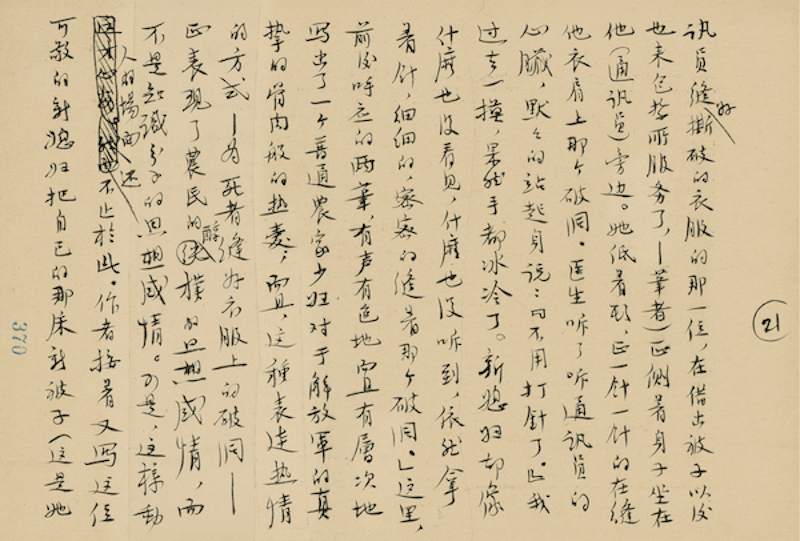 讯员缝好撕破的衣服的那一位，在借出被子以后
也来包扎所服务了，—笔者）正侧着身子坐在
他（通讯员）旁边。她低着头，正一针一针的在缝
他衣肩上那个破洞。医生听了听通讯员的
心臟，默々的站起身说：“不用打针了。”我
过去一摸，果然手都冰冷了。新媳妇却像
什麽也没看见，什麽也没听到，依然拿
着针，细细的，密密的缝着那个破洞。」这里，
前后呼应的两笔，有声有色地而且有層次地
写出了一个普通農家少妇对于解放軍的真
挚的骨肉般的热爱，而且，这種表達热情
的方式—为死者缝好衣服上的破洞——
正表现了農民的醇樸的思想感情，而
不是知識分子的思想感情。可是，这样動
人的場面还不止於此。作者接着又写这位
可敬的新媳妇把自己的那床新被子（这是她
21
370